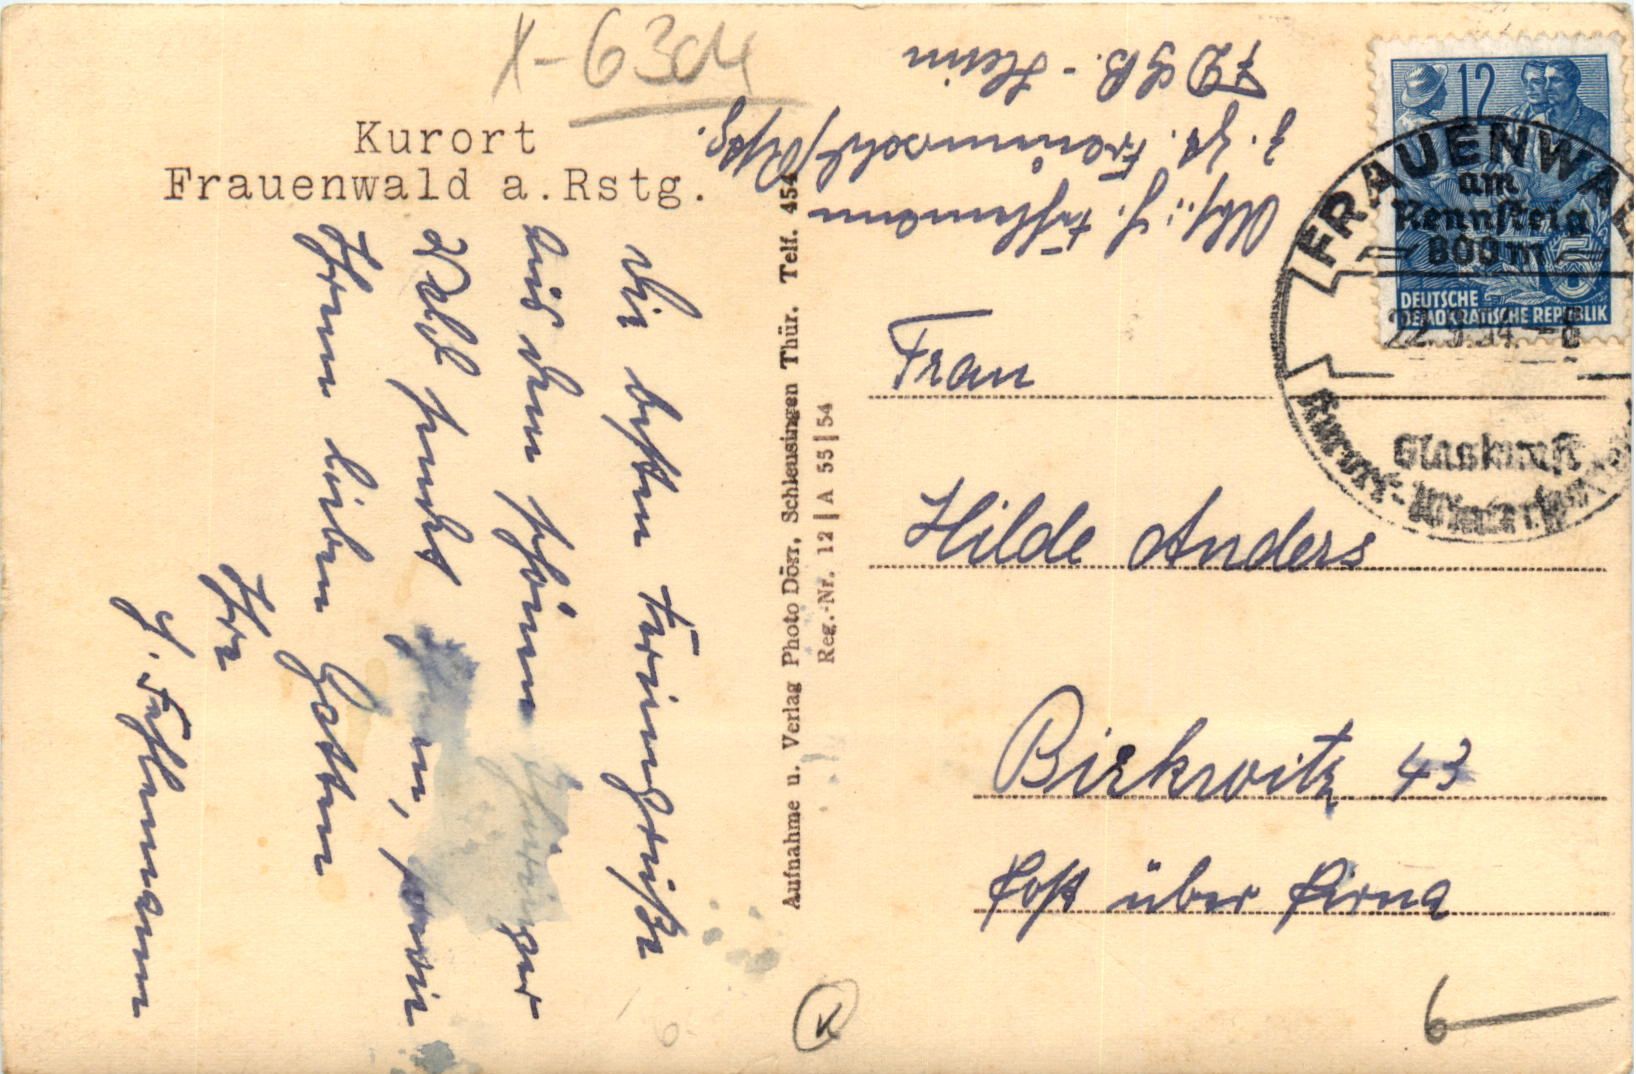 X-6304
Kurort
Frauenwald a. Rstg.
Die besten Feriengrüße
aus dem schönen Thüringer
Wald sendet Ihnen, sowie
Ihrem lieben Gatten
Ihre
J. Fehlmann
Aufnahme u. Verlag Photo Dörr, Schleusingen Thür. Telf. 454
Reg.-Nr. 12 | A 55 | 54
Abs.: J. Fehlmann
z. Zt. Frauenwald/Rstg.
FDGB.-Heim
12
DEUTSCHE
DEMOKRATISCHE REPUBLIK
5
FRAUENWALD
am
Rennsteig
800 m
22.9.54.-8
Glaskunst
Kurort-Wintersport
Frau
Hilde Anders
Birkwitz 43
Post über Pirna
K
6